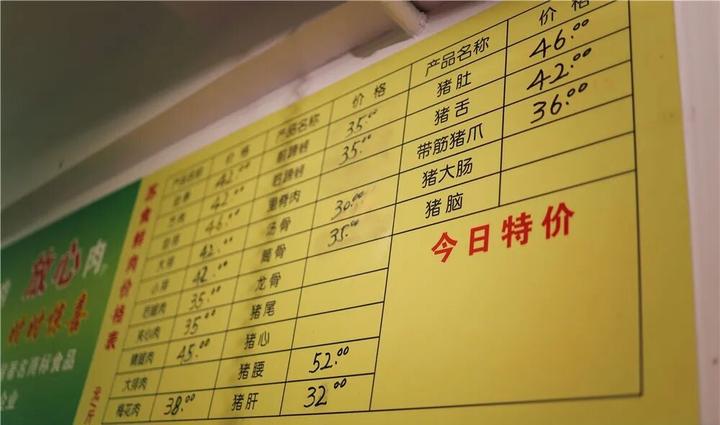 放心肉
时时惊喜
著名商标食品
企业
苏食鲜肉价格表
产品名称 价格
42.00
42.00
46.00
大排 42.00
小排 42.00
后腿肉 35.00
夹心肉 35.00
精腿肉 45.00
大排肉
梅花肉 38.00
产品名称 价格
前蹄膀 35.00
后蹄膀 35.00
里脊肉
汤骨 30.00
筒骨 35.00
龙骨
猪尾
猪心
猪腰 52.00
猪肝 32.00
产品名称 价格
猪肚 46.00
猪舌 42.00
带筋猪爪 36.00
猪大肠
猪脑
今日特价